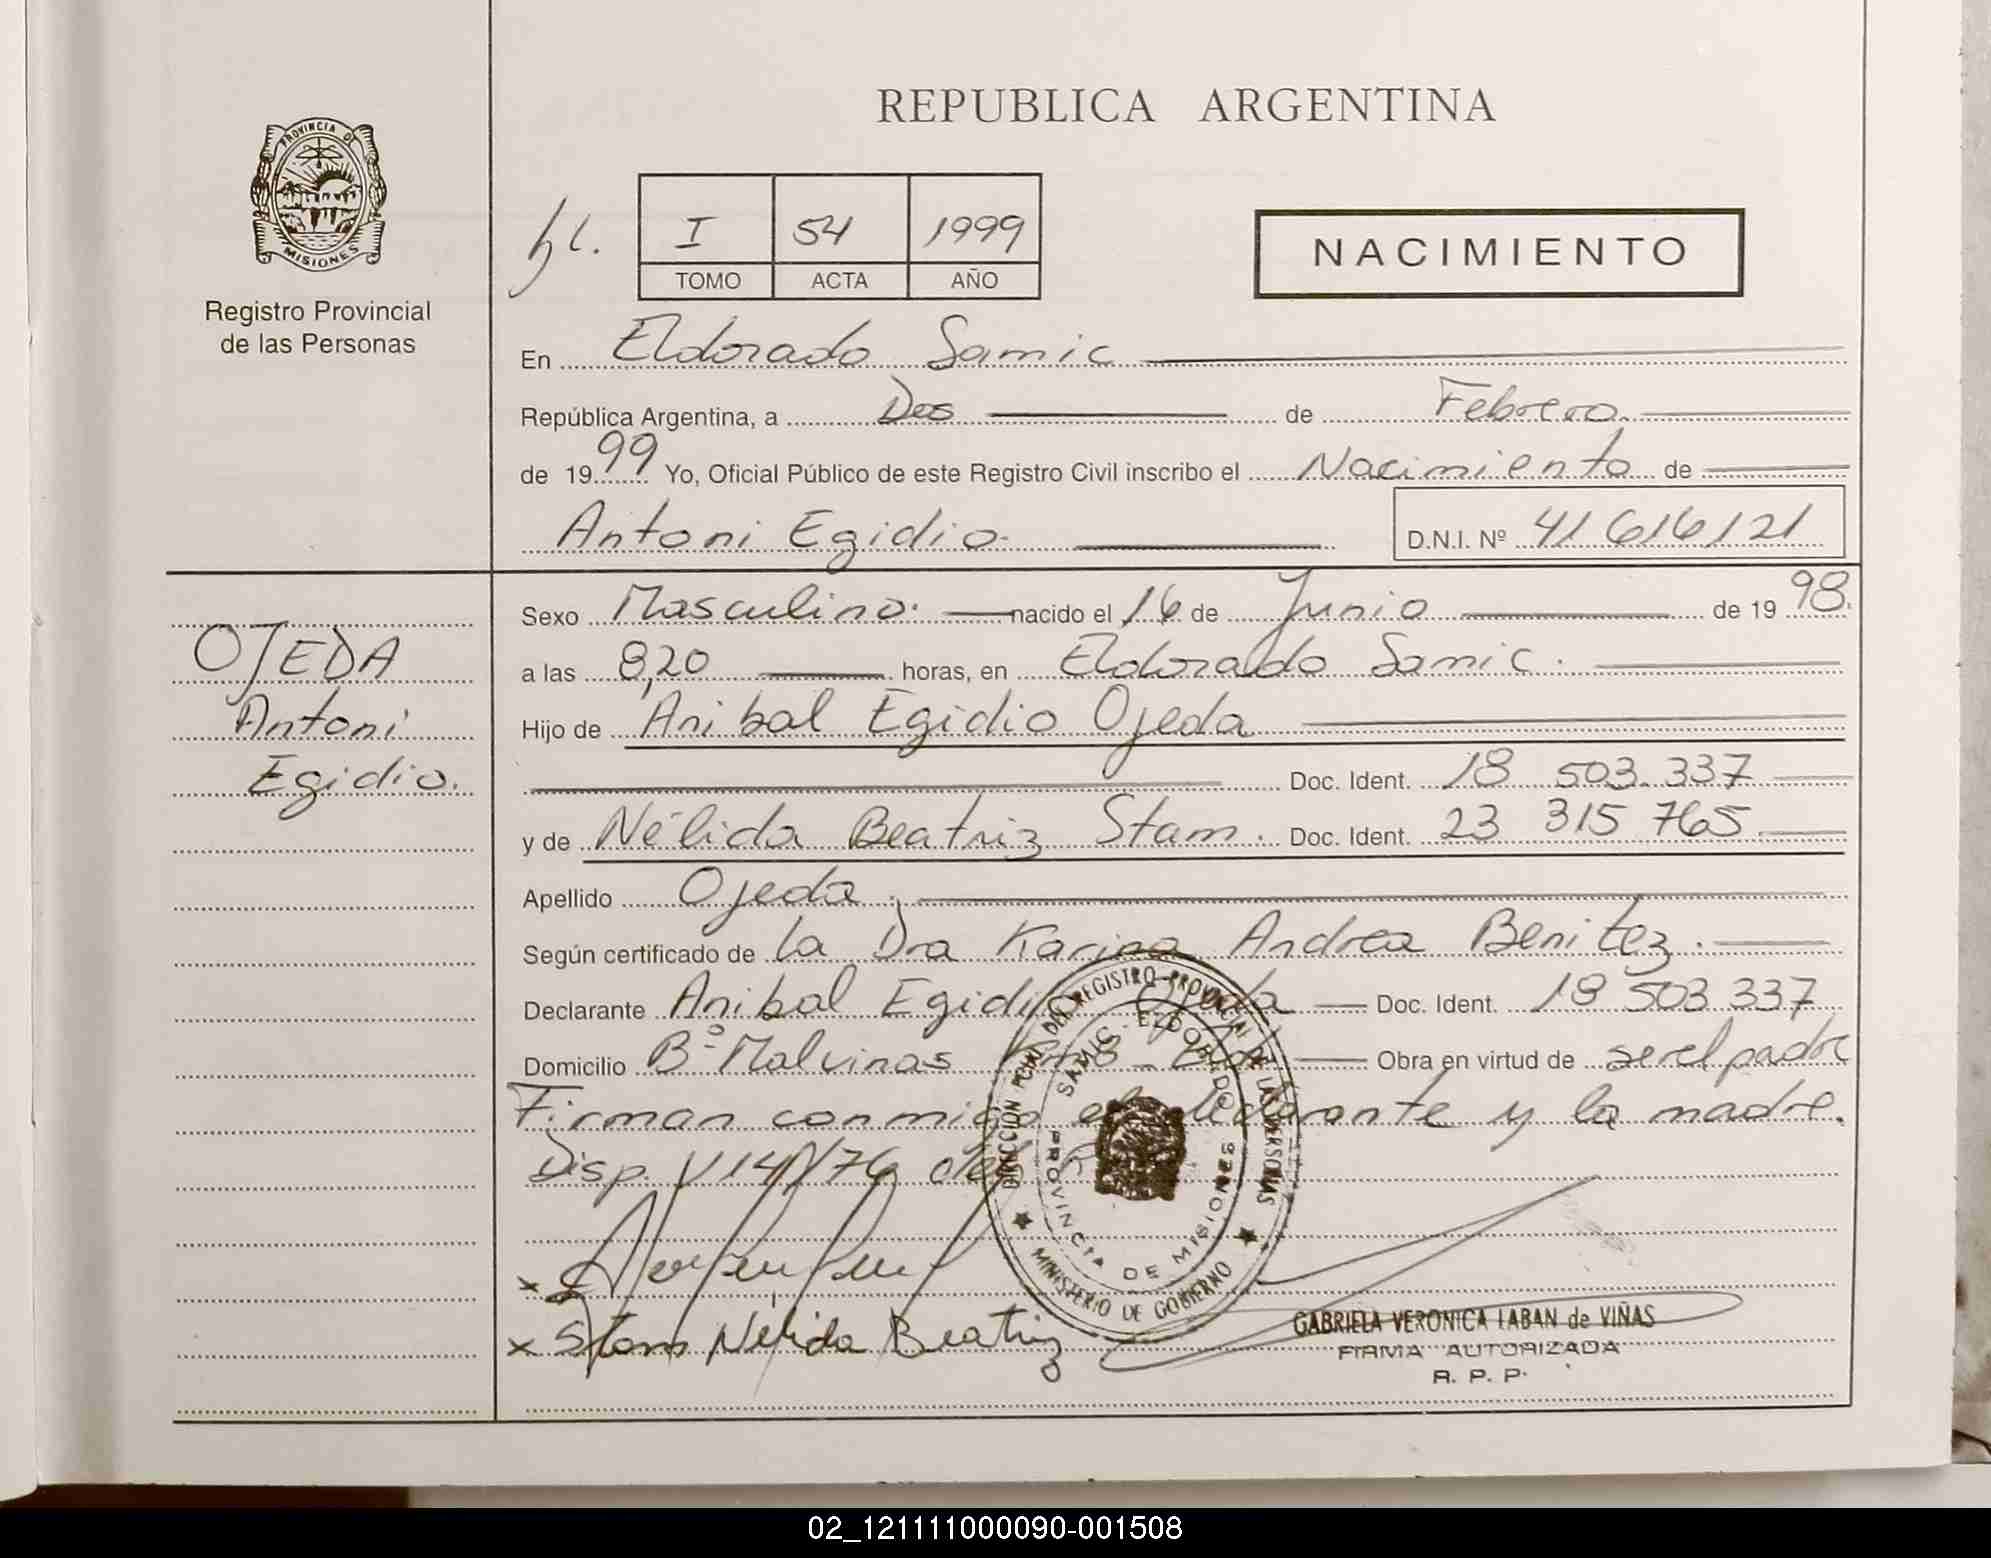 REPUBLICA ARGENTINA
PROVINCIA DE
MISIONES
Registro Provincial
de las Personas
I 54 1999
TOMO ACTA AÑO
NACIMIENTO
En Eldorado Samic
República Argentina, a Dos de Febrero
de 1999 Yo, Oficial Público de este Registro Civil inscribo el Nacimiento de
Antoni Egidio. D.N.I. Nº 41 616 121
OJEDA
Antoni
Egidio.
Sexo Masculino. nacido el 16 de Junio de 1998.
a las 8,20 horas, en Eldorado Samic.
Hijo de Anibal Egidio Ojeda
Doc. Ident. 18 503.337
y de Nélida Beatriz Stam. Doc. Ident. 23 315 765
Apellido Ojeda.
Según certificado de la Dra Karina Andrea Benitez.
Declarante Anibal Egidio Ojeda Doc. Ident. 18 503 337
Domicilio Bº Malvinas Obra en virtud de ser el padre
Firman conmigo el declarante y la madre.
Disp.
DIRECCION PCIAL. DEL REGISTRO PROVINCIAL DE LAS PERSONAS
SAMIC - ELDORADO
PROVINCIA DE MISIONES
MINISTERIO DE GOBIERNO
x
x Stam Nélida Beatriz
GABRIELA VERONICA LABAN de VIÑAS
FIRMA AUTORIZADA
R. P. P.
02_121111000090-001508